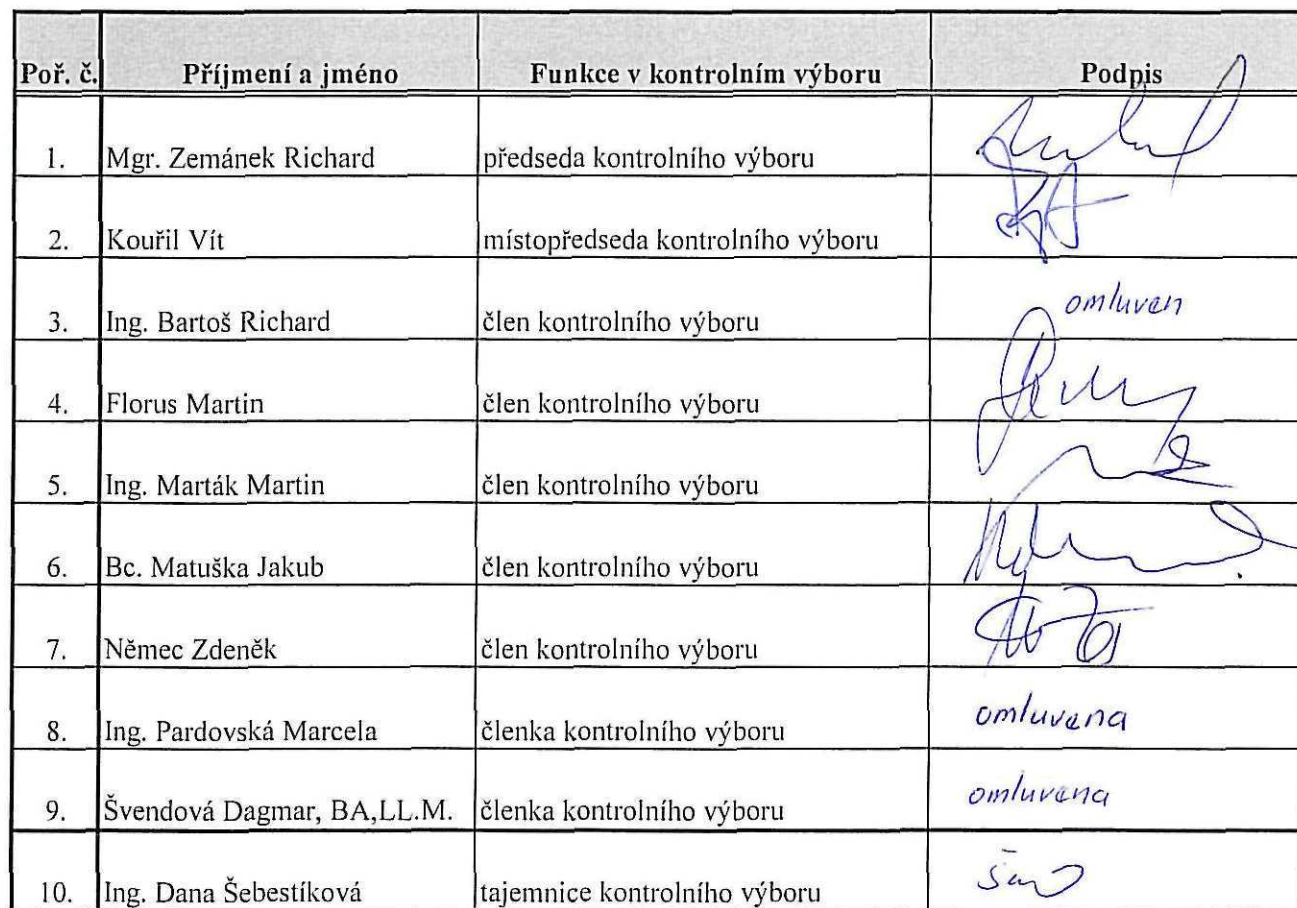 Poř. č. Příjmení a jméno Funkce v kontrolním výboru Podpis
1. Mgr. Zemánek Richard předseda kontrolního výboru
2. Kouřil Vít místopředseda kontrolního výboru
3. Ing. Bartoš Richard člen kontrolního výboru omluven
4. Florus Martin člen kontrolního výboru
5. Ing. Marták Martin člen kontrolního výboru
6. Bc. Matuška Jakub člen kontrolního výboru
7. Němec Zdeněk člen kontrolního výboru
8. Ing. Pardovská Marcela členka kontrolního výboru omluvena
9. Švendová Dagmar, BA,LL.M. členka kontrolního výboru omluvena
10. Ing. Dana Šebestíková tajemnice kontrolního výboru